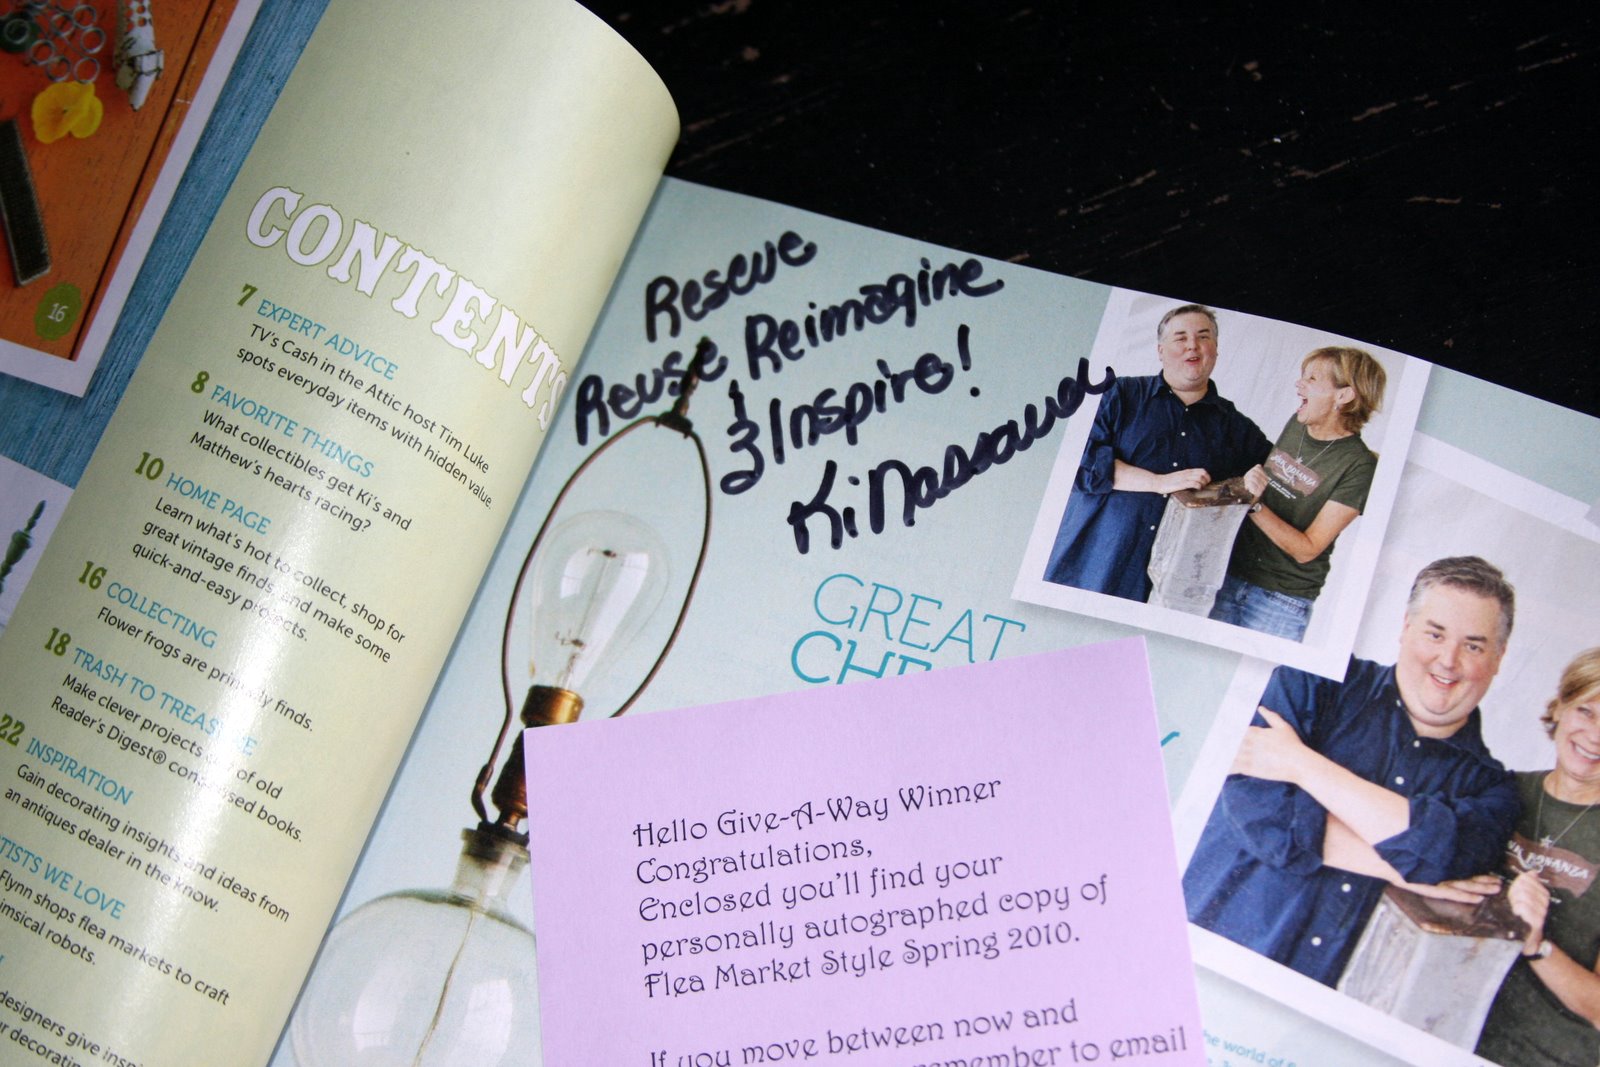 16
CONTENTS
7 EXPERT ADVICE
TV's Cash in the Attic host Tim Luke
spots everyday items with hidden value.
8 FAVORITE THINGS
What collectibles get Ki's and
Matthew's hearts racing?
10 HOME PAGE
Learn what's hot to collect, shop for
great vintage finds, and make some
quick-and-easy projects.
16 COLLECTING
Flower frogs are primarily finds.
18 TRASH TO TREASURE
Make clever projects out of old
Reader's Digest® condensed books.
22 INSPIRATION
Gain decorating insights and ideas from
an antiques dealer in the know.
WE LOVE
Flynn shops flea markets to craft
robots.
designers give
Rescue
Reuse Reimagine
& Inspire!
Ki Nassauer
GREAT
Hello Give-A-Way Winner
Congratulations,
Enclosed you'll find your
personally autographed copy of
Flea Market Style Spring 2010.
If you move between now and
remember to email
the world of